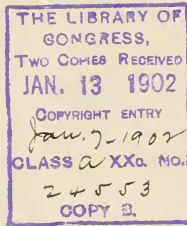 THE LIBRARY OF
CONGRESS,
TWO COPIES RECEIVED
JAN. 13 1902
COPYRIGHT ENTRY
Jan. 7-1902
CLASS a XXc. No.
24553
COPY B.